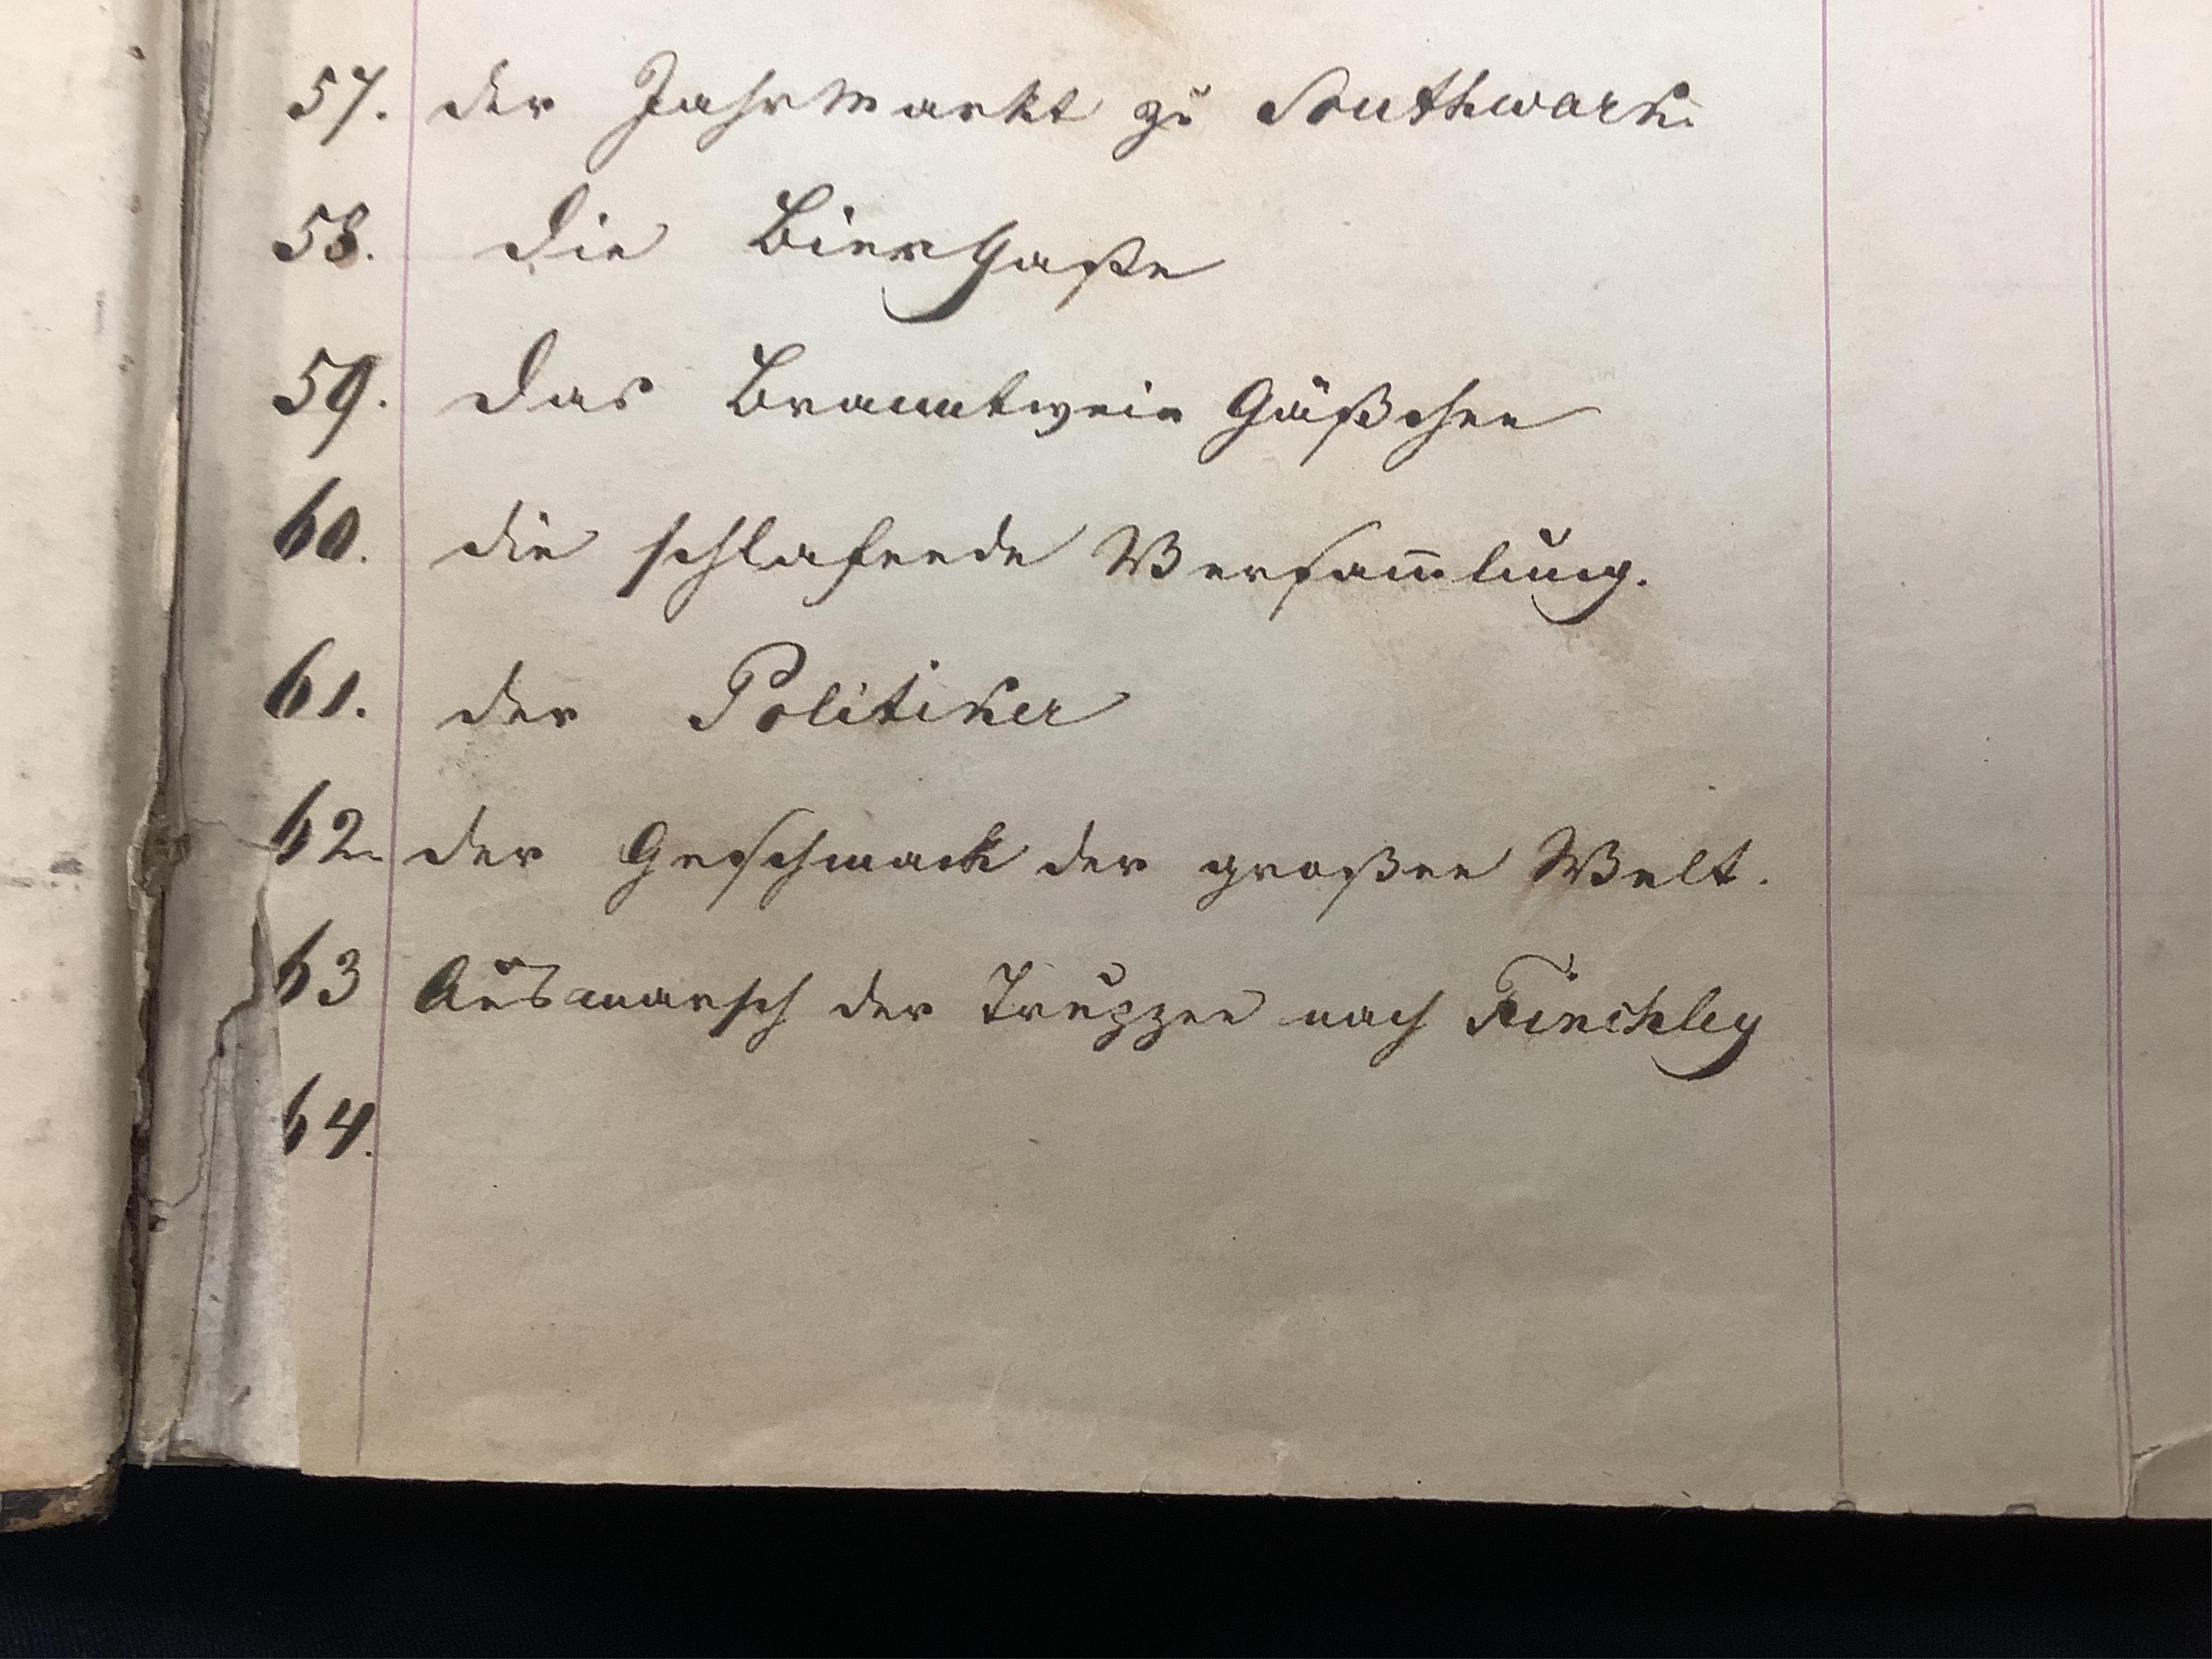 57. der Jahrmarkt zu Southwark.
58. die Biergaße
59. das Branntwein Gäßchen
60. die schlafende Versam̅lung.
61. der Politiker
62. der Geschmack der großen Welt.
63 Ausmarsch der Truppen nach Finchley
64.